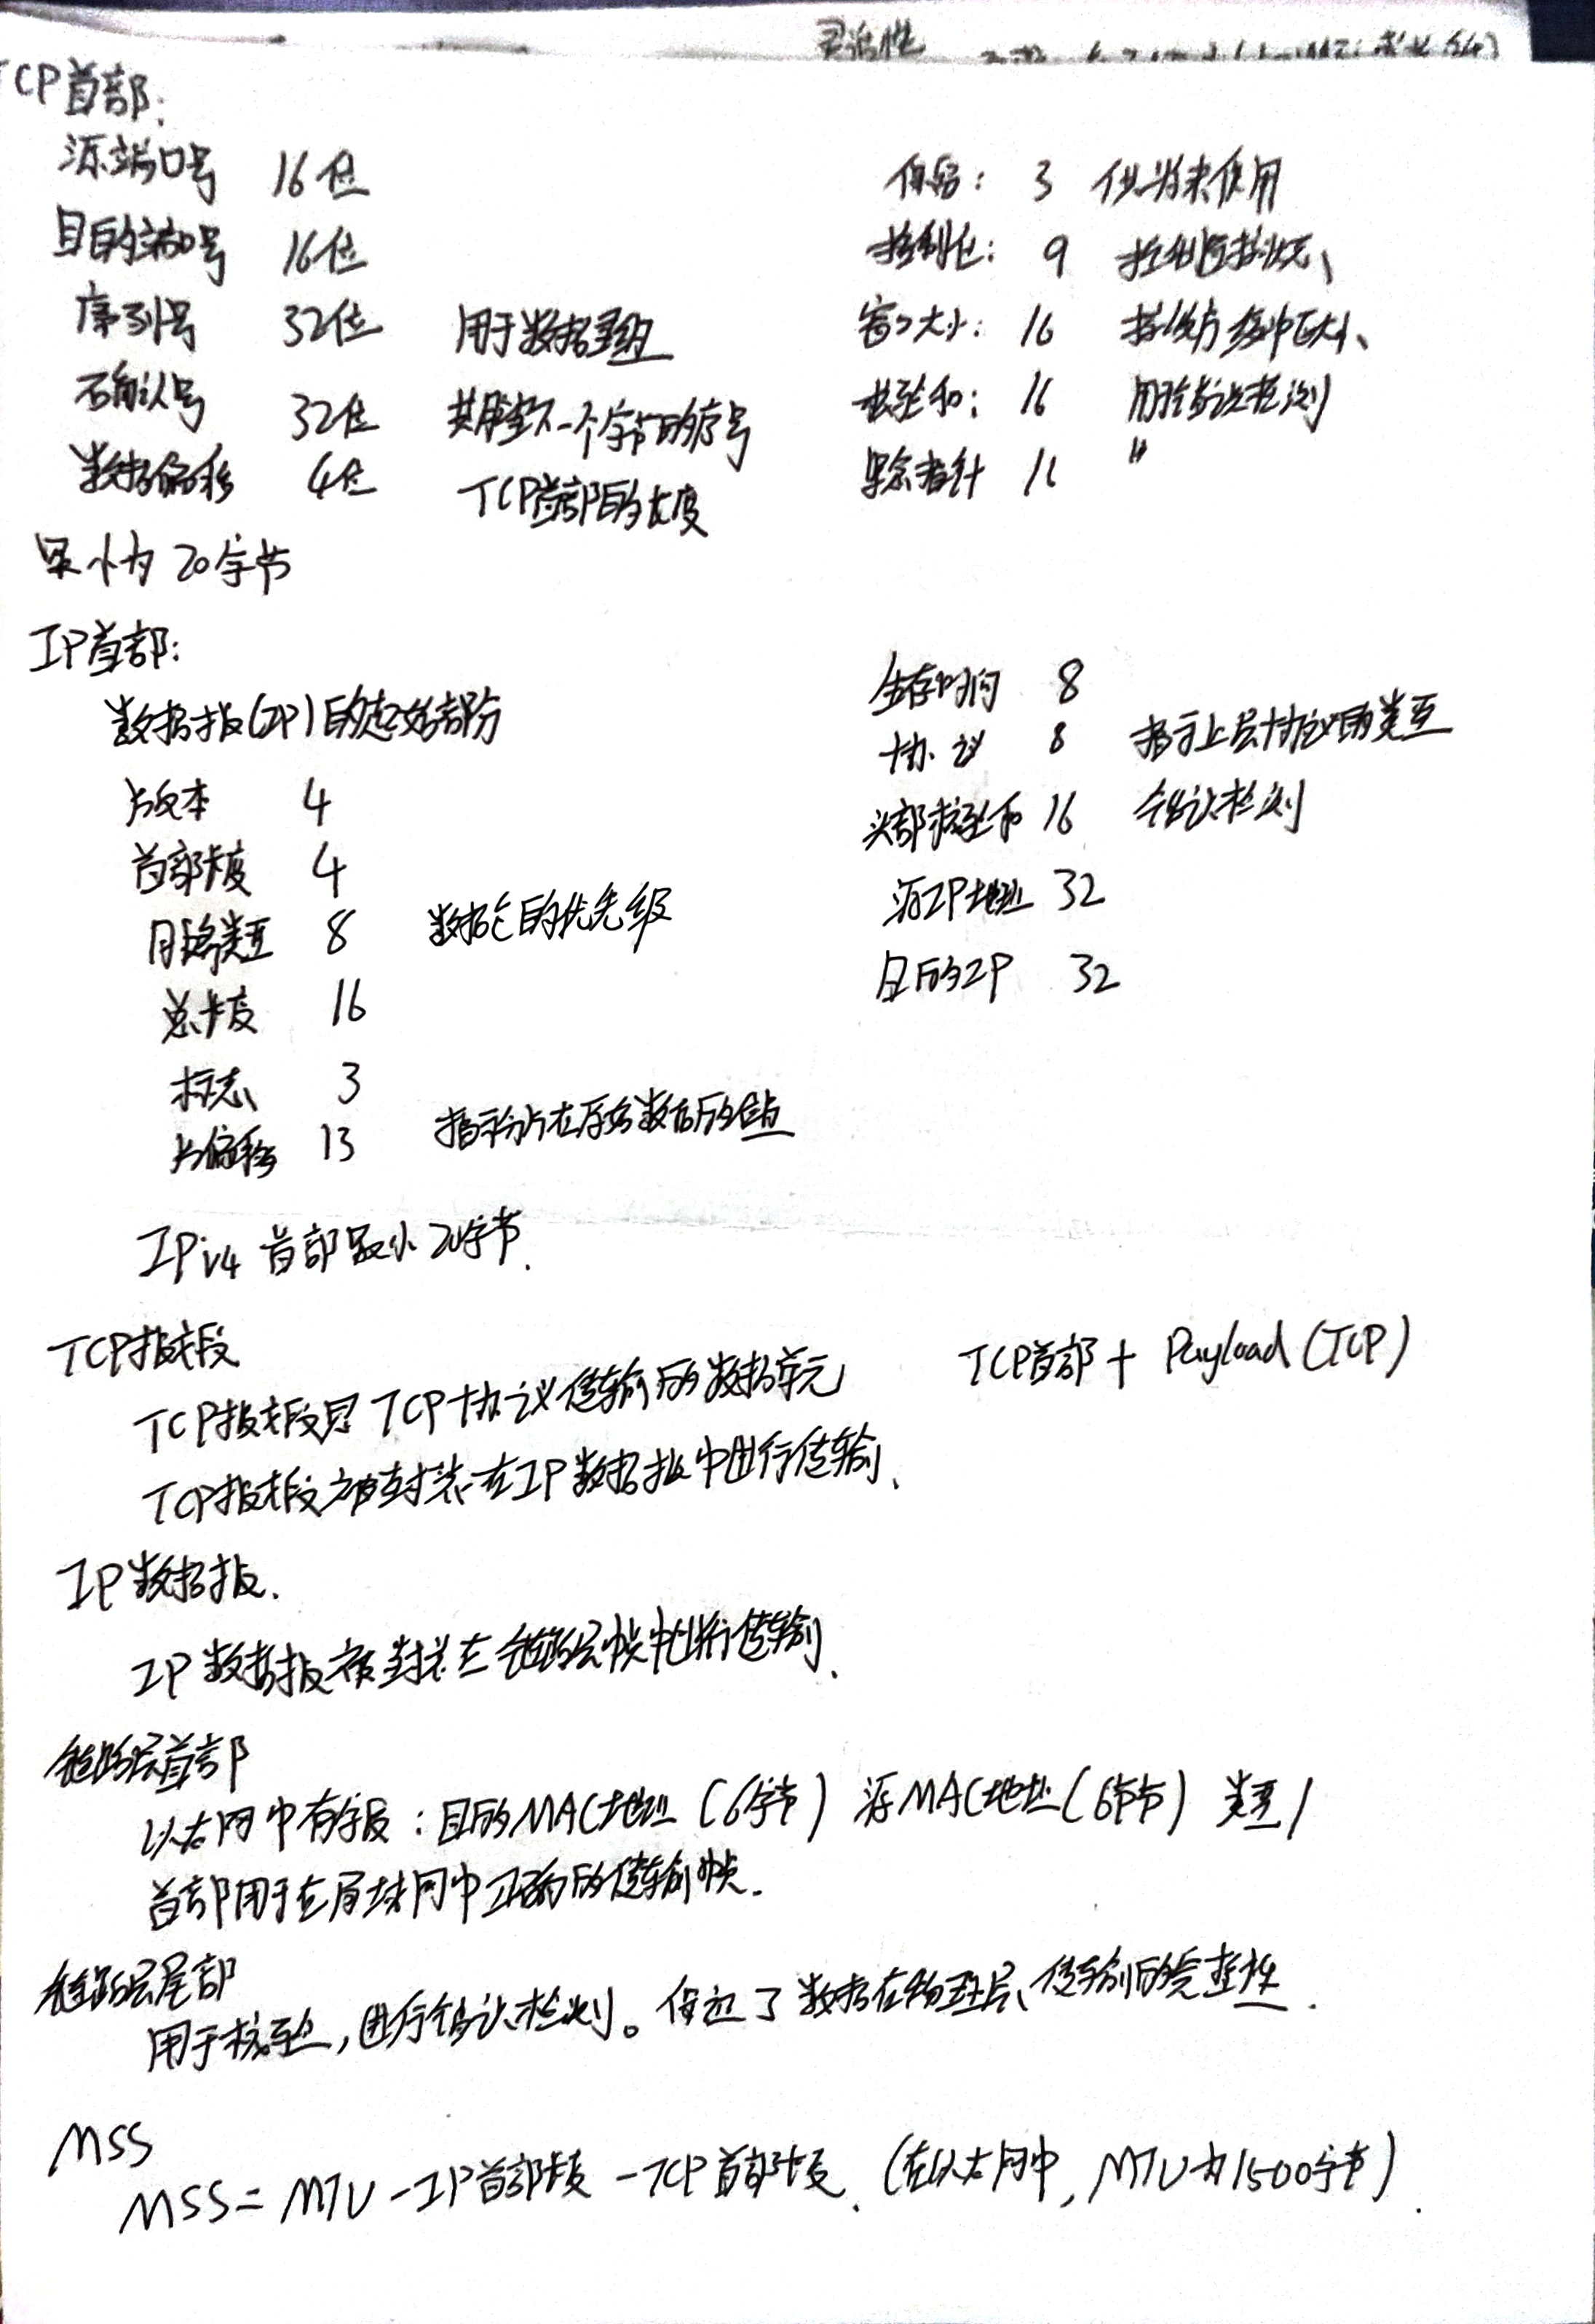 灵活性
TCP首部:
源端口号 16位
目的端口号 16位
序列号 32位 用于数据重组
确认号 32位 期望下一个字节的序号
数据偏移 4位 TCP首部的长度
保留: 3 供将来使用
控制位: 9 控制连接状态、
窗口大小: 16 接收方缓冲区大小、
校验和: 16 用于错误检测
紧急指针 16 "
最小为 20字节
IP首部:
数据报(IP)的起始部份
版本 4
首部长度 4
服务类型 8 数据包的优先级
总长度 16
标志 3
片偏移 13 指示分片在原始数据的位置
生存时间 8
协议 8 指示上层协议的类型
头部校验和 16 错误检测
源IP地址 32
目的IP 32
IPv4 首部最小 20字节.
TCP报文段
TCP首部 + Payload (TCP)
TCP报文段是 TCP协议传输的数据单元
TCP报文段被封装在IP数据报中进行传输、
IP数据报.
IP数据报被封装在链路层帧中进行传输、
链路层首部
以太网中有字段:目的MAC地址 (6字节) 源MAC地址(6字节) 类型/
首部用于在局域网中正确的传输帧.
链路层尾部
用于校验,进行错误检测。保证了数据在物理层、传输的完整性.
MSS
MSS = MTU - IP首部长度 - TCP首部长度. (在以太网中, MTU为1500字节).